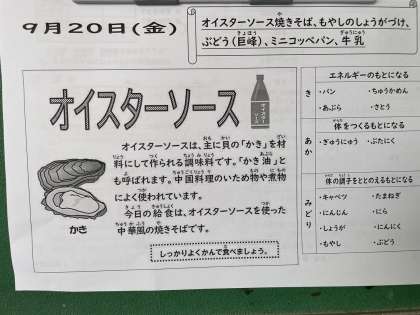 9月20日(金)
オイスターソース焼きそば、もやしのしょうがづけ、
ぶどう(巨峰)、ミニコッペパン、牛乳
オイスターソース
オイスターソース
オイスターソースは、主に貝の「かき」を材
料にして作られる調味料です。「かき油」と
も呼ばれます。中国料理のいため物や煮物
によく使われています。
今日の給食は、オイスターソースを使った
中華風の焼きそばです。
かき
しっかりよくかんで食べましょう。
き
エネルギーのもとになる
・パン ・ちゅうかめん
・あぶら ・さとう
あか
体をつくるもとになる
・ぎゅうにゅう ・ぶたにく
みどり
体の調子をととのえるもとになる
・キャベツ ・たまねぎ
・にんじん ・にら
・しょうが ・にんにく
・もやし ・ぶどう